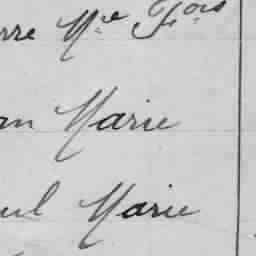 rre Mie Fois
an Marie
ul Marie